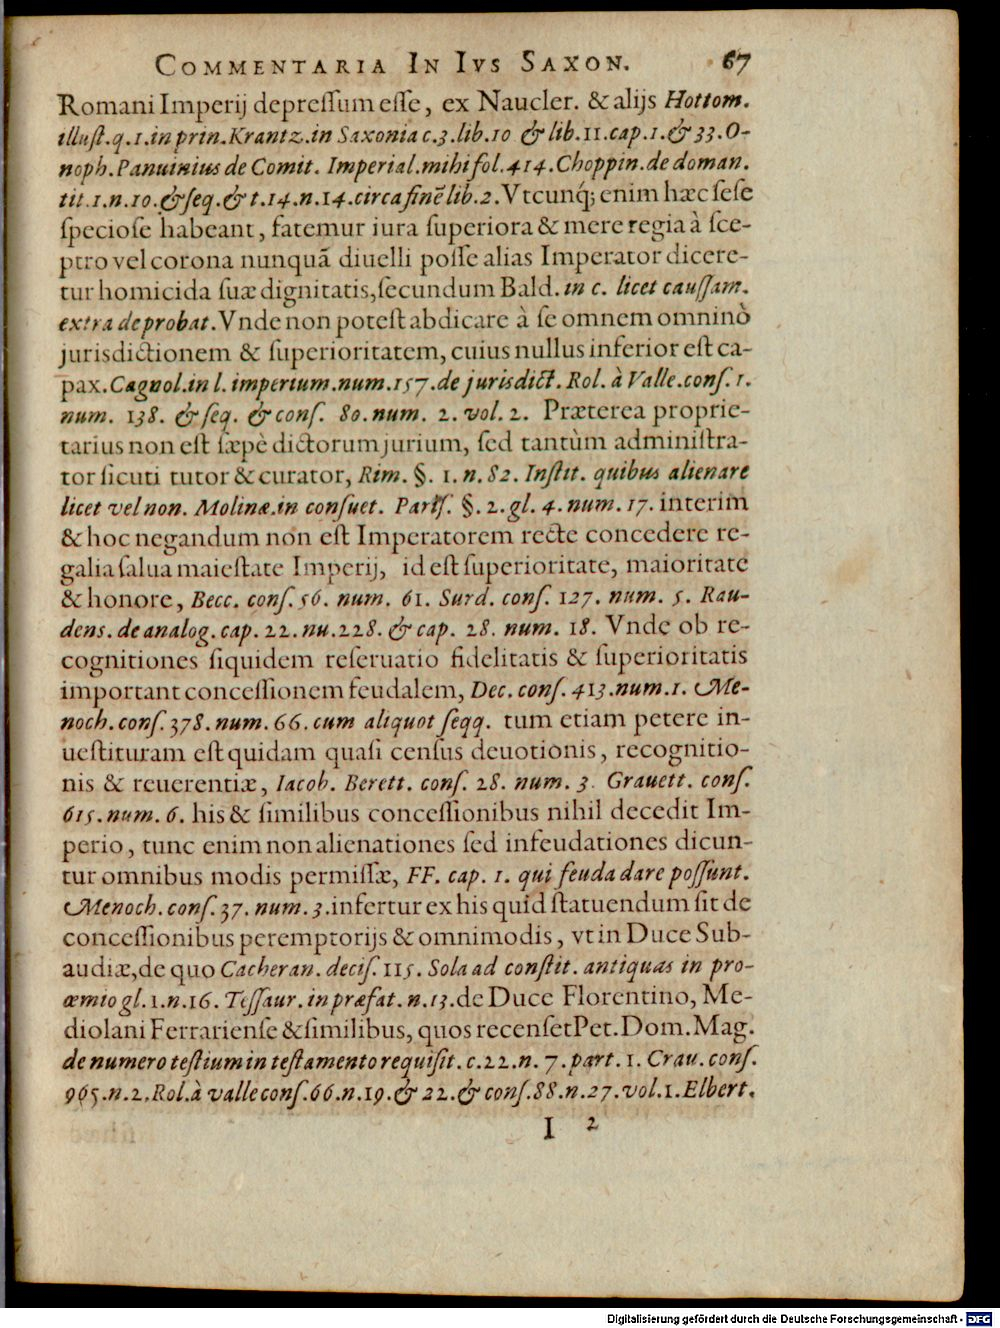 COMMENTARIA IN IVS SAXON. 67
Romani Imperij depreſſum eſſe, ex Naucler. & alijs Hottom.
illuſt.q.1.in prin.Krantz.in Saxonia c.3.lib.10 & lib.11.cap.1.& 33.O-
noph.Panuinius de Comit. Imperial.mihi fol.414.Choppin.de doman.
tit.1.n.10.& ſeq.& t.14.n.14.circa finē lib.2.Vtcunq́; enim hæc ſeſe
ſpecioſe habeant, fatemur iura ſuperiora & mere regia à ſce-
ptro vel corona nunquã diuelli poſſe alias Imperator dicere-
tur homicida ſuæ dignitatis,ſecundum Bald.in c. licet cauſſam.
extra de probat.Vnde non poteſt abdicare à ſe omnem omninò
jurisdictionem & ſuperioritatem, cuius nullus inferior eſt ca-
pax.Cagnol.in l. imperium.num.157.de jurisdict. Rol. à Valle.conſ.1.
num. 138. & ſeq. & conſ. 80.num. 2. vol. 2. Præterea proprie-
tarius non eſt ſæpè dictorum jurium, ſed tantùm adminiſtra-
tor ſicuti tutor & curator, Rim. §. 1. n. 82. Inſtit. quibus alienare
licet vel non. Molinæ.in conſuet. Pariſ. §. 2. gl. 4. num. 17. interim
& hoc negandum non eſt Imperatorem recte concedere re-
galia ſalua maieſtate Imperij, id eſt ſuperioritate, maioritate
& honore, Becc. conſ.56. num. 61. Surd. conſ. 127. num. 5. Rau-
dens. de analog. cap. 22. nu.228. & cap. 28. num. 18. Vnde ob re-
cognitiones ſiquidem reſeruatio fidelitatis & ſuperioritatis
important conceſſionem feudalem, Dec. conſ. 413.num.1. Me-
noch.conſ.378.num.66.cum aliquot ſeqq. tum etiam petere in-
ueſtituram eſt quidam quaſi cenſus deuotionis, recognitio-
nis & reuerentiæ, Iacob. Berett. conſ. 28. num. 3. Grauett. conſ.
615.num. 6. his & ſimilibus conceſſionibus nihil decedit Im-
perio, tunc enim non alienationes ſed infeudationes dicun-
tur omnibus modis permiſſæ, FF. cap. 1. qui feuda dare poſſunt.
Menoch.conſ.37. num.3.infertur ex his quid ſtatuendum ſit de
conceſſionibus peremptorijs & omnimodis, vt in Duce Sub-
audiæ,de quo Cacheran. deciſ.115. Sola ad conſtit. antiquas in pro-
œmio gl.1.n.16. Teſſaur. in præfat. n.13.de Duce Florentino, Me-
diolani Ferrarienſe & ſimilibus, quos recenſet Pet. Dom. Mag.
de numero teſtium in teſtamento requiſit. c.22.n. 7. part. 1. Crau. conſ.
965.n.2.Rol.à valle conſ.66.n.19.& 22.& conſ.88.n.27.vol.1.Elbert.
I 2
Digitalisierung gefördert durch die Deutsche Forschungsgemeinschaft - DFG